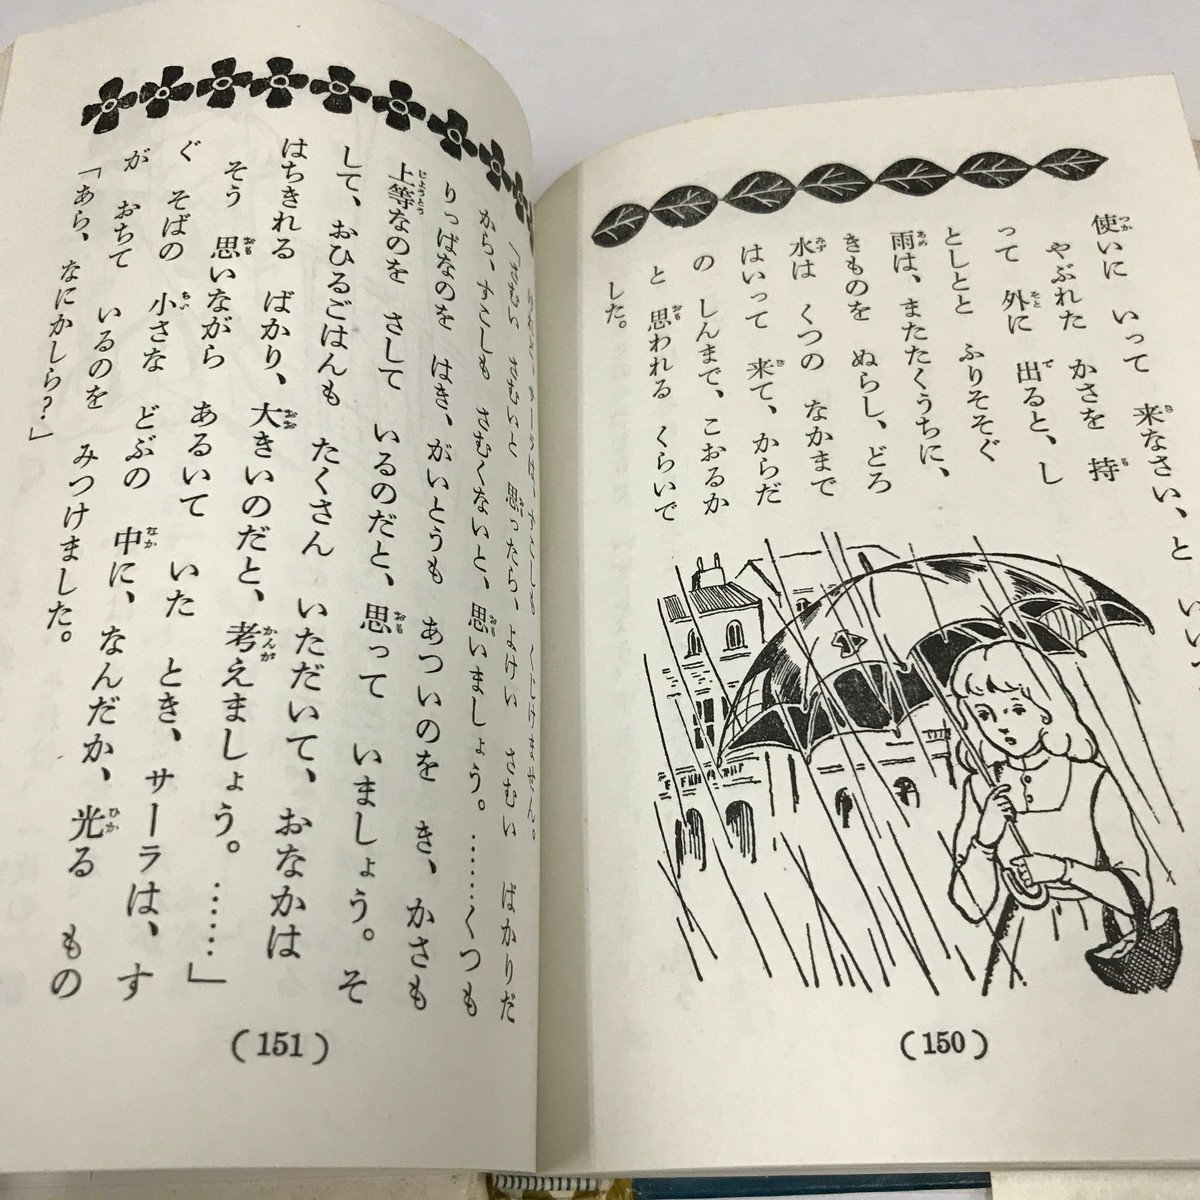 使いに いって 来なさい、と いい
やぶれた かさを 持
って 外に 出ると、し
としとと ふりそそぐ
雨は、またたくうちに、
きものを ぬらし、どろ
水は くつの なかまで
はいって 来て、からだ
の しんまで、こおるか
と 思われる くらいで
した。
(150)
「さむい さむいと 思ったら、よけい さむい ばかりだ
から、すこしも さむくないと、思いましょう。……くつも
りっぱなのを はき、がいとうも あついのを き、かさも
上等なのを さして いるのだと、思って いましょう。そ
して、おひるごはんも たくさん いただいて、おなかは
はちきれる ばかり、大きいのだと、考えましょう。……」
そう 思いながら あるいて いた とき、サーラは、す
ぐ そばの 小さな どぶの 中に、なんだか、光る もの
が おちて いるのを みつけました。
「あら、なにかしら?」
(151)